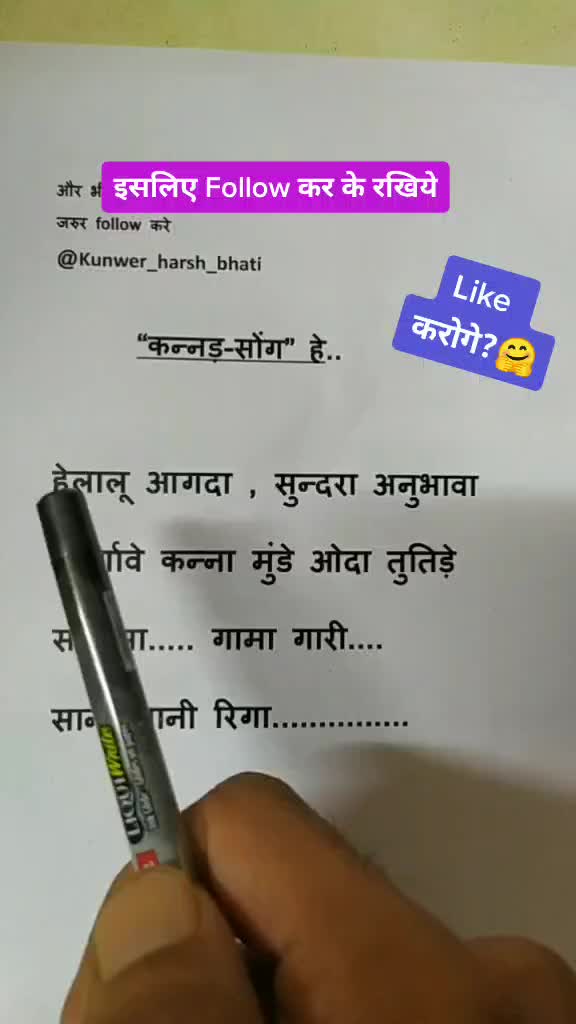 इसलिए Follow कर के रखिये
और
जरुर follow करे
@Kunwer_harsh_bhati
Like
करोगे?🤗
“कन्नड़-सोंग” हे..
हेलालू आगदा , सुन्दरा अनुभावा
कन्ना मुंडे ओदा तुतिड़े
गामा गारी....
रिगा...............
LIQUIWhite